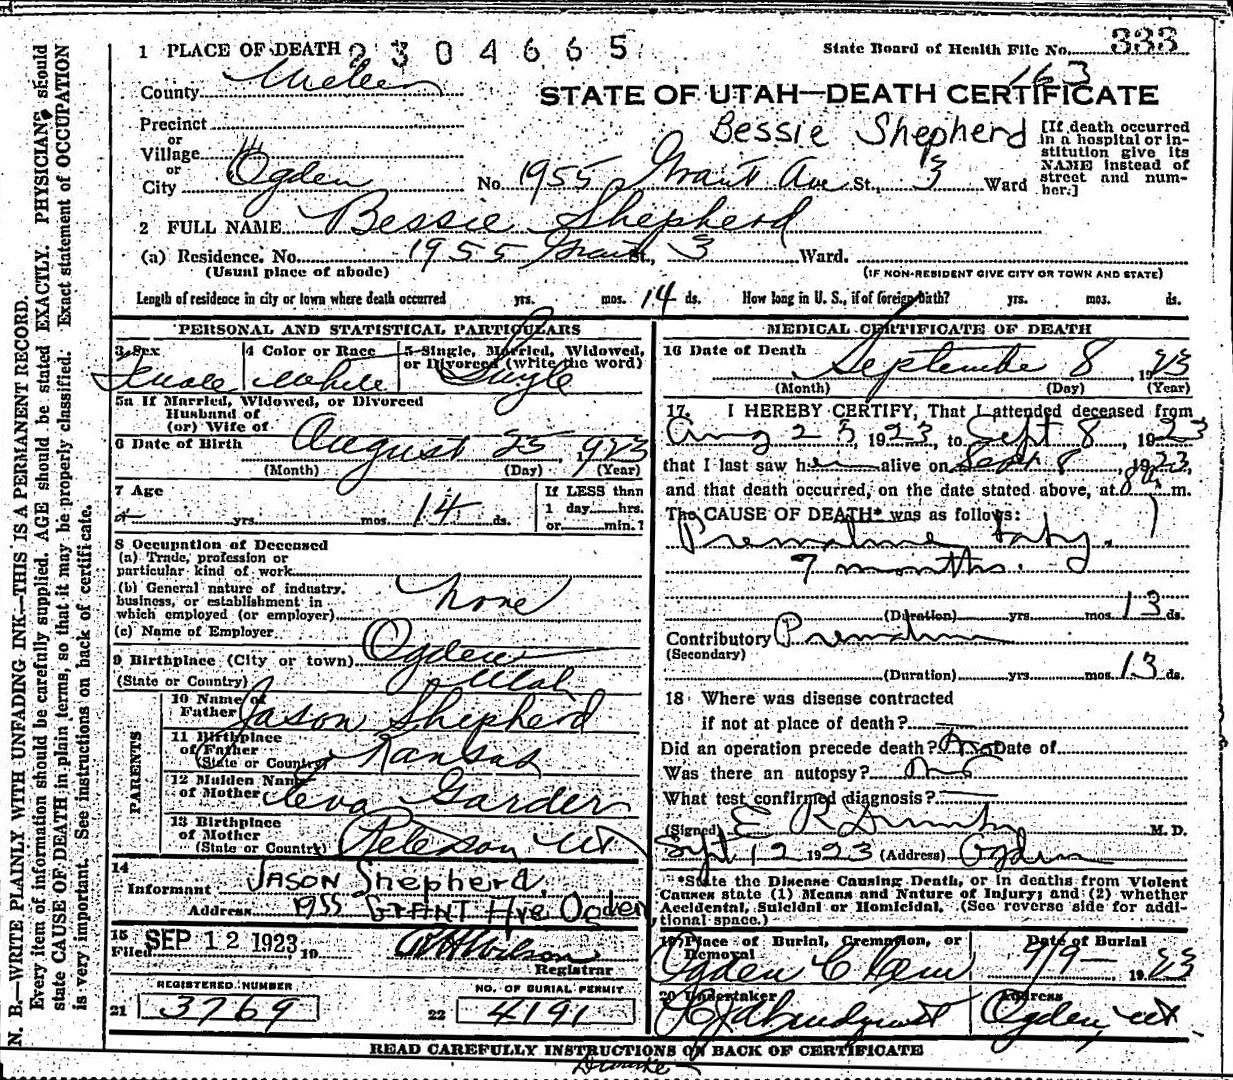 1 PLACE OF DEATH 2304665
State Board of Health File No. 333
County
163
STATE OF UTAH—DEATH CERTIFICATE
Precinct
or
Village
or
City Ogden
Bessie Shepherd
No. 1955 Grant Ave St., 3 Ward
[If death occurred
in a hospital or in-
stitution give its
NAME instead of
street and num-
ber.]
2 FULL NAME Bessie Shepherd
(a) Residence. No. 1955 Grant St., 3 Ward.
(Usual place of abode)
(IF NON-RESIDENT GIVE CITY OR TOWN AND STATE)
Length of residence in city or town where death occurred yrs. mos. 14 ds. How long in U. S., if of foreign birth? yrs. mos. ds.
PERSONAL AND STATISTICAL PARTICULARS
3 Sex
Female
4 Color or Race
White
5 Single, Married, Widowed,
or Divorced (write the word)
Single
5a If Married, Widowed, or Divorced
Husband of
(or) Wife of
6 Date of Birth August 25, 1923
(Month) (Day) (Year)
7 Age
yrs. mos. 14 ds.
If LESS than
1 day hrs.
or min.?
8 Occupation of Deceased
(a) Trade, profession or
particular kind of work
(b) General nature of industry,
business, or establishment in
which employed (or employer) none
(c) Name of Employer
9 Birthplace (City or town) Ogden
(State or Country) Utah
PARENTS
10 Name of
Father Jason Shepherd
11 Birthplace
of Father
(State or Country) Kansas
12 Maiden Name
of Mother Leva Garder
13 Birthplace
of Mother
(State or Country) Peterson Ut
14
Informant JASON Shepherd,
Address 1955 GRANT Ave Ogden
15
Filed SEP 12 1923, 19
Wilson
Registrar
REGISTERED NUMBER
21 3769
NO. OF BURIAL PERMIT
22 4191
MEDICAL CERTIFICATE OF DEATH
16 Date of Death
September 8, 1923
(Month) (Day) (Year)
17. I HEREBY CERTIFY, That I attended deceased from
Aug 25, 1923, to Sept 8, 1923
that I last saw her alive on Sept 8, 1923,
and that death occurred, on the date stated above, at 8 a m.
The CAUSE OF DEATH* was as follows:
Premature baby.
7 months.
(Duration) yrs. mos. 13 ds.
Contributory Premature
(Secondary)
(Duration) yrs. mos. 13 ds.
18 Where was disease contracted
if not at place of death?
Did an operation precede death? No Date of
Was there an autopsy? no
What test confirmed diagnosis?
(Signed) E R M. D.
Sept 12 1923 (Address) Ogden
*State the Disease Causing Death, or in deaths from Violent
Causes state (1) Means and Nature of Injury; and (2) whether
Accidental, Suicidal or Homicidal. (See reverse side for addi-
tional space.)
19 Place of Burial, Cremation, or
Removal
Ogden C Cem
Date of Burial
9/9— 1923
20 Undertaker
Address
Ogden, Ut.
READ CAREFULLY INSTRUCTIONS ON BACK OF CERTIFICATE
N. B.—WRITE PLAINLY WITH UNFADING INK—THIS IS A PERMANENT RECORD.
Every item of information should be carefully supplied. AGE should be stated EXACTLY. PHYSICIANS should
state CAUSE OF DEATH in plain terms, so that it may be properly classified. Exact statement of OCCUPATION
is very important. See instructions on back of certificate.